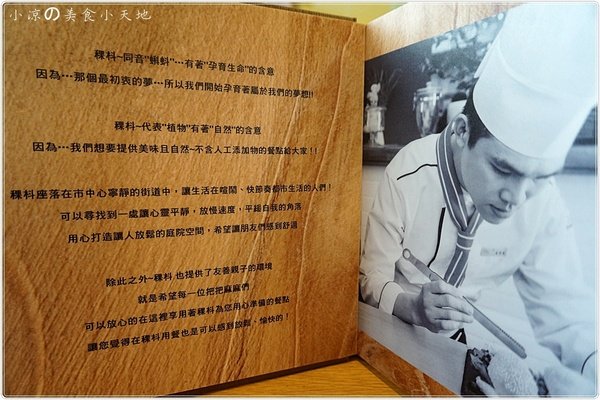 小凉の美食小天地
稞枓~同音"蝌蚪"…有著"孕育生命"的含意
因為…那個最初衷的夢…所以我們開始孕育著屬於我們的夢想!!
稞枓~代表"植物"有著"自然"的含意
因為…我們想要提供美味且自然~不含人工添加物的餐點給大家!!
稞枓座落在市中心寧靜的街道中，讓生活在喧鬧、快節奏都市生活的人們！
可以尋找到一處讓心靈平靜，放慢速度，平緩自我的角落
用心打造讓人放鬆的庭院空間，希望讓朋友們感到舒適
除此之外~稞枓,也提供了友善親子的環境
就是希望每一位把把麻麻們
可以放心的在這裡享用著稞枓為您用心準備的餐點
讓您覺得在稞枓用餐也是可以感到放鬆、愉快的！